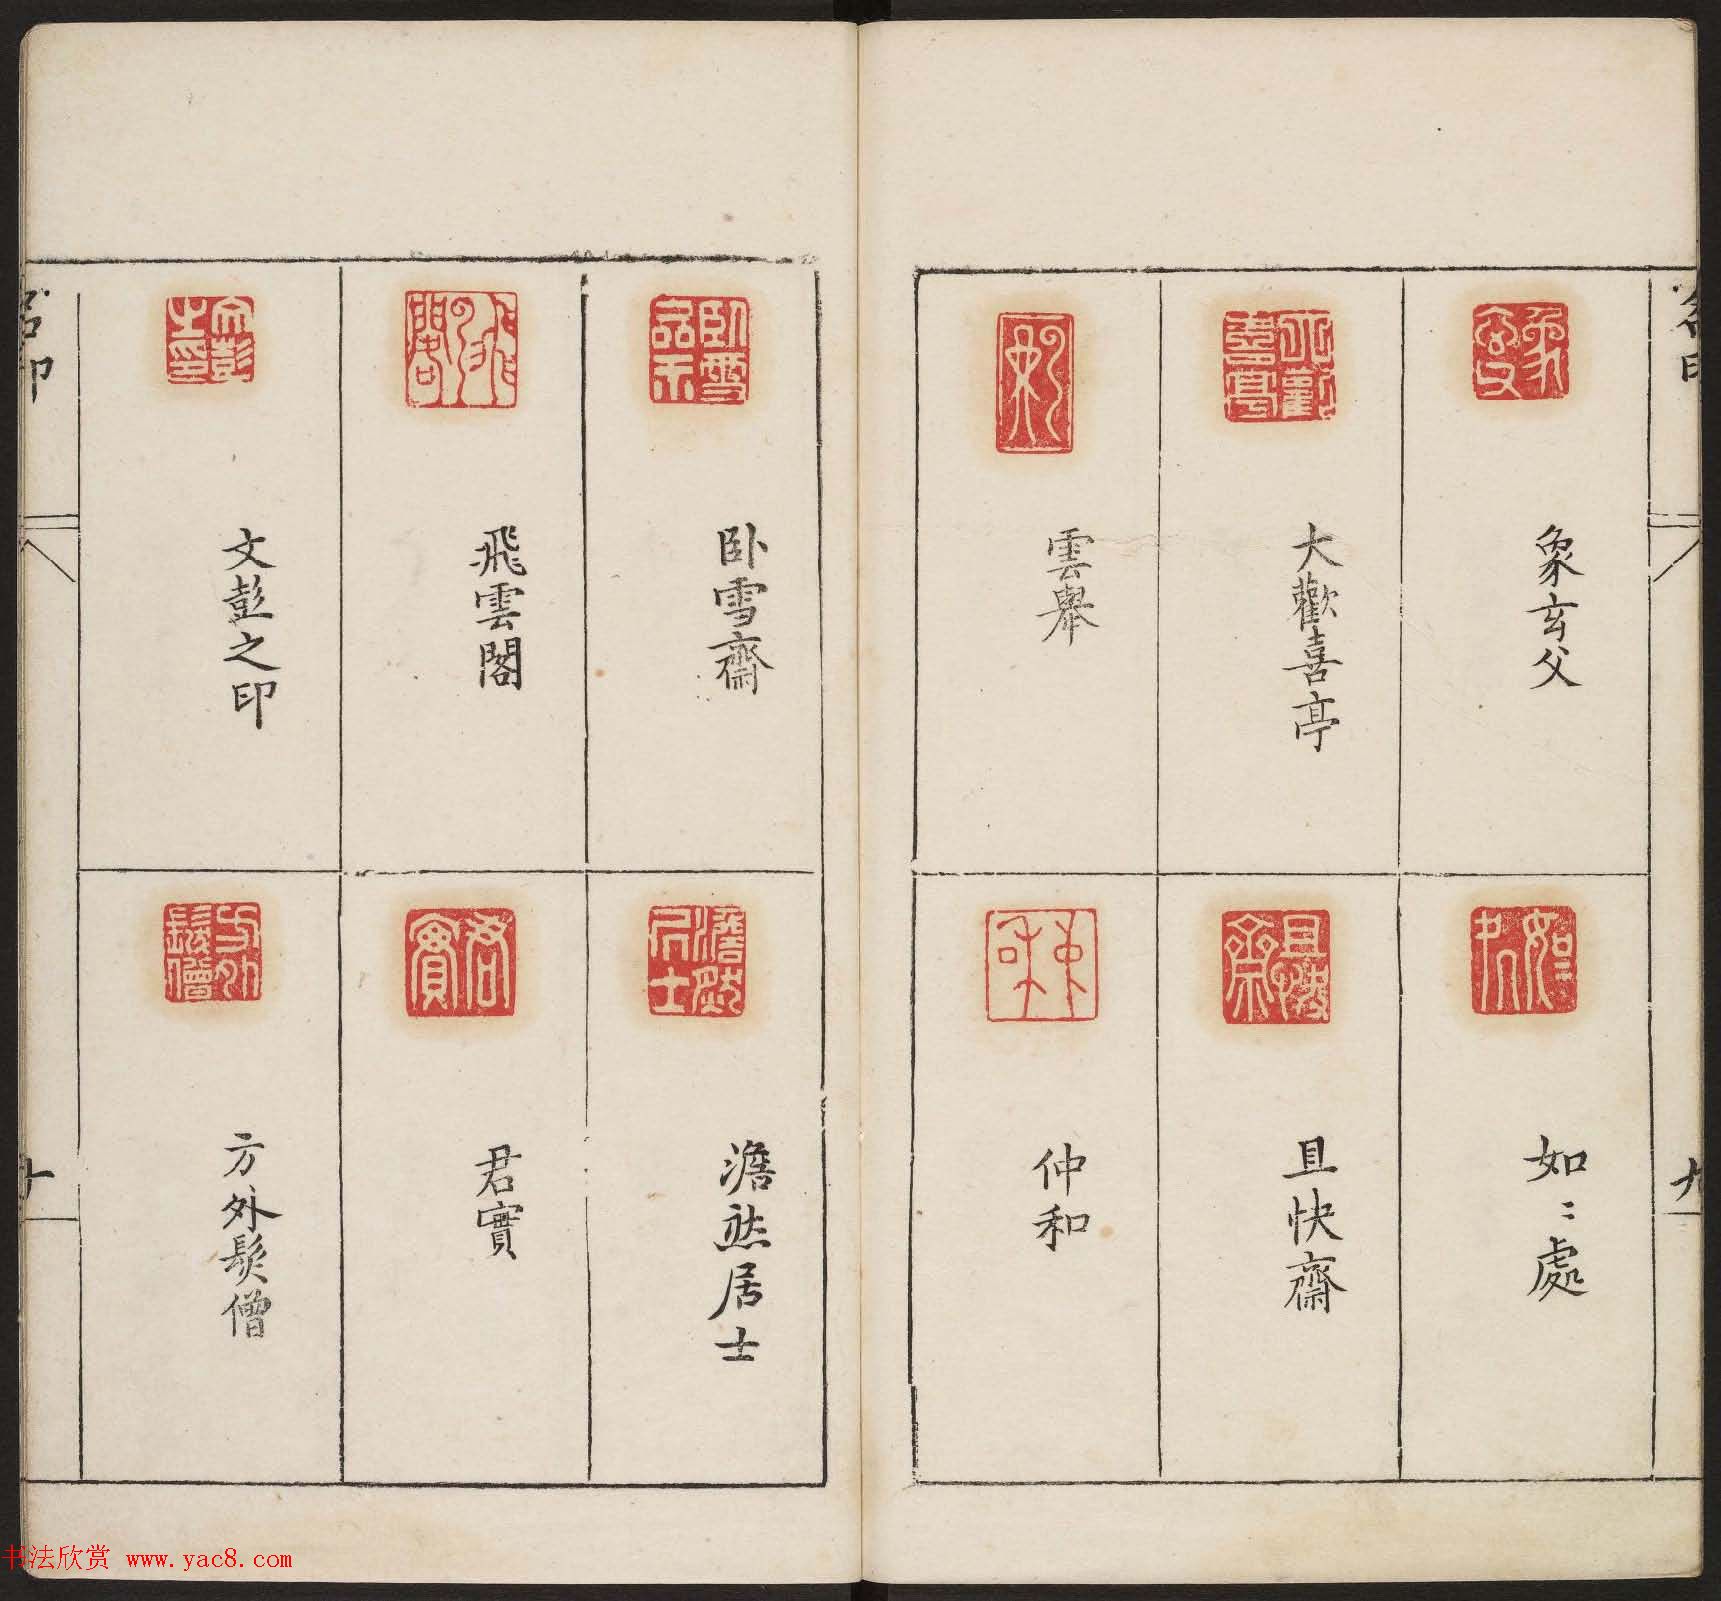 象玄父
大歡喜亭
雲舉
如〻處
且快齋
仲和
九
卧雪齋
飛雲閣
文彭之印
澹然居士
君實
方外髮僧
十
书法欣赏 www.yac8.com